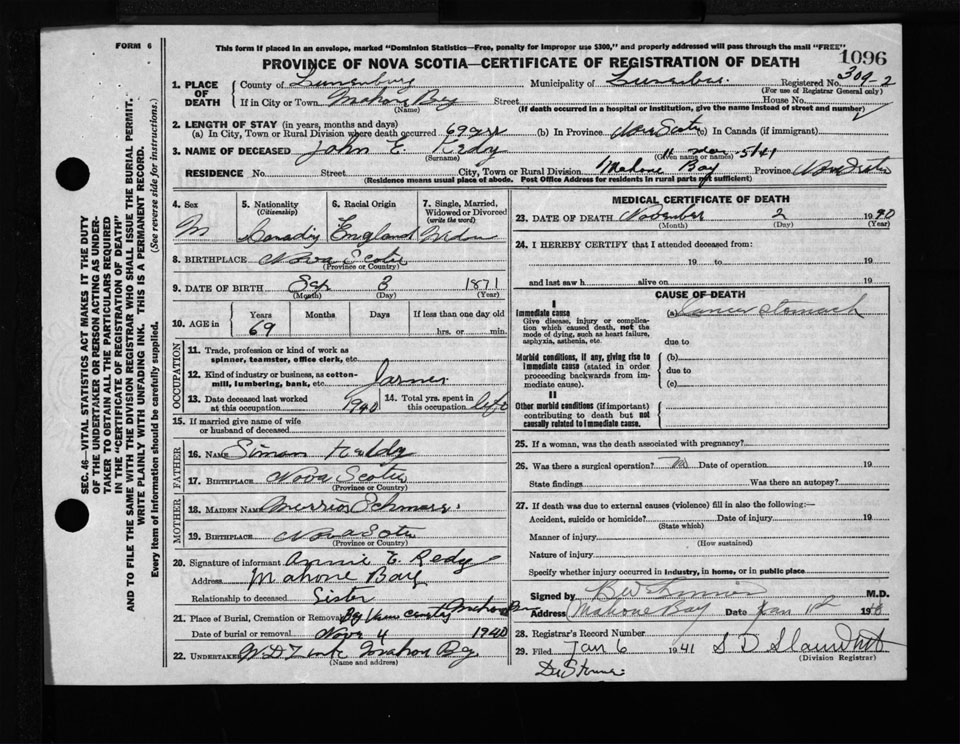 FORM 6
This form if placed in an envelope, marked "Dominion Statistics—Free, penalty for improper use $300," and properly addressed will pass through the mail "FREE"
PROVINCE OF NOVA SCOTIA—CERTIFICATE OF REGISTRATION OF DEATH
1096
1. PLACE OF DEATH
County of Lunenburg Municipality of Registered No. 309-2
(For use of Registrar General only)
If in City or Town Mahone Bay Street House No.
(Name) (If death occurred in a hospital or institution, give the name instead of street and number)
2. LENGTH OF STAY (in years, months and days)
(a) In City, Town or Rural Division where death occurred 69 (b) In Province Nova Scotia (c) In Canada (if immigrant)
3. NAME OF DECEASED John E. Redy
(Surname) (Given name or names)
RESIDENCE No. Street City, Town or Rural Division Bay Province Nova Scotia
(Residence means usual place of abode. Post Office Address for residents in rural parts not sufficient)
4. Sex M
5. Nationality (Citizenship)
6. Racial Origin England
7. Single, Married, Widowed or Divorced (write the word)
8. BIRTHPLACE Nova Scotia
(Province or Country)
9. DATE OF BIRTH Sep 3 1871
(Month) (Day) (Year)
10. AGE in Years Months Days If less than one day old
69 hrs. or min.
OCCUPATION
11. Trade, profession or kind of work as spinner, teamster, office clerk, etc.
12. Kind of industry or business, as cotton-mill, lumbering, bank, etc.
13. Date deceased last worked at this occupation 1940
14. Total yrs. spent in this occupation life
15. If married give name of wife or husband of deceased
FATHER
16. Name Simon
17. Birthplace Nova Scotia
(Province or Country)
MOTHER
18. Maiden Name
19. Birthplace Nova Scotia
(Province or Country)
20. Signature of informant Annie E. Redy
Address Mahone Bay
Relationship to deceased Sister
21. Place of Burial, Cremation or Removal
Date of burial or removal Nov 4 1940
22. Undertaker Mahone Bay
(Name and address)
MEDICAL CERTIFICATE OF DEATH
23. DATE OF DEATH November 2 1940
(Month) (Day) (Year)
24. I HEREBY CERTIFY that I attended deceased from:
19 to 19
and last saw h alive on 19
CAUSE OF DEATH
I
Immediate cause
Give disease, injury or complication which caused death, not the mode of dying, such as heart failure, asphyxia, asthenia, etc.
(a) Cancer Stomach
due to
Morbid conditions, if any, giving rise to immediate cause (stated in order proceeding backwards from immediate cause).
(b)
due to
(c)
II
Other morbid conditions (if important) contributing to death but not causally related to immediate cause.
25. If a woman, was the death associated with pregnancy?
26. Was there a surgical operation? No Date of operation 19
State findings Was there an autopsy?
27. If death was due to external causes (violence) fill in also the following:—
Accident, suicide or homicide? Date of injury 19
(State which)
Manner of injury
(How sustained)
Nature of injury
Specify whether injury occurred in industry, in home, or in public place
Signed by M.D.
Address Mahone Bay Date Jan
28. Registrar's Record Number
29. Filed Jan 6 1941 S. D.
(Division Registrar)
SEC. 46—VITAL STATISTICS ACT MAKES IT THE DUTY OF THE UNDERTAKER OR PERSON ACTING AS UNDERTAKER TO OBTAIN ALL THE PARTICULARS REQUIRED IN THE "CERTIFICATE OF REGISTRATION OF DEATH" AND TO FILE THE SAME WITH THE DIVISION REGISTRAR WHO SHALL ISSUE THE BURIAL PERMIT.
WRITE PLAINLY WITH UNFADING INK. THIS IS A PERMANENT RECORD.
Every item of information should be carefully supplied. (See reverse side for instructions.)